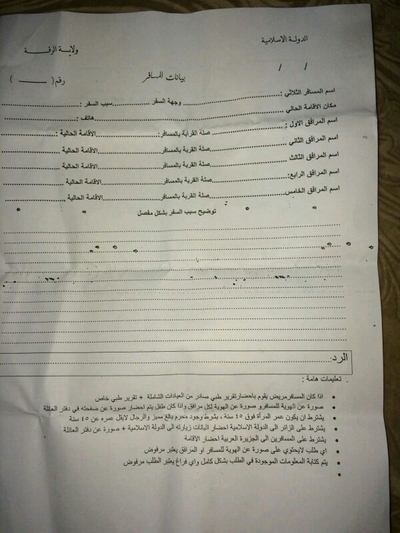 الدولة الاسلامية
ولاية الرقة
/ /
بيانات المسافر
رقم ( )
اسم المسافر الثلاثي : وجهة السفر سبب السفر :
مكان الاقامة الحالي هاتف :
اسم المرافق الاول : صلة القرابة بالمسافر: الاقامة الحالية :
اسم المرافق الثاني صلة القربة بالمسافر: الاقامة الحالية :
اسم المرافق الثالث صلة القربة بالمسافر: الاقامة الحالية :
اسم المرافق الرابع: صلة القربة بالمسافر: الاقامة الحالية :
اسم المرافق الخامس صلة القربة بالمسافر: الاقامة الحالية :
توضيح سبب السفر بشكل مفصل
الرد:
تعليمات هامة :
اذا كان المسافر مريض يقوم باحضار تقرير طبي صادر من العيادات الشاملة + تقرير طبي خاص
صورة عن الهوية للمسافر و صورة عن الهوية لكل مرافق واذا كان طفل يتم احضار صورة عن صفحته في دفتر العائلة
يشترط ان يكون عمر المرأة فوق ٤٥ سنة ، بشرط وجود محرم بالغ مميز والرجال لايقل عمره عن ٤٥ سنة
يشترط على الزائر الى الدولة الاسلامية احضار اثباتات زيارته الى الدولة الاسلامية + صورة عن دفتر العائلة
يشترط على المسافرين الى الجزيرة العربية احضار الاقامة
اي طلب لايحتوي على صورة عن الهوية للمسافر او المرافق يعتبر مرفوض
يتم كتابة المعلومات الموجودة في الطلب بشكل كامل واي فراغ يعتبر الطلب مرفوض